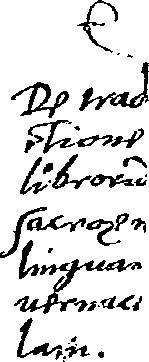 De trad
ctione
librorū
sacrorum
linguam
vernacu
lam.